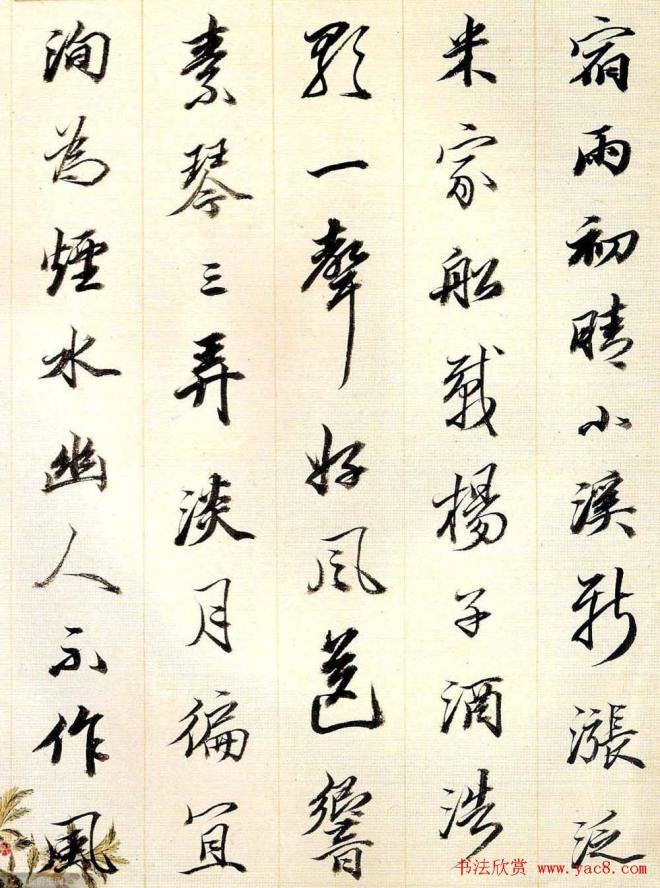 宿雨初晴小溪新漲泛
米家船載楊子酒浩
歌一聲好風送響
素琴三弄淡月徧宜
洵為煙水幽人不作風
书法欣赏 www.yac8.com